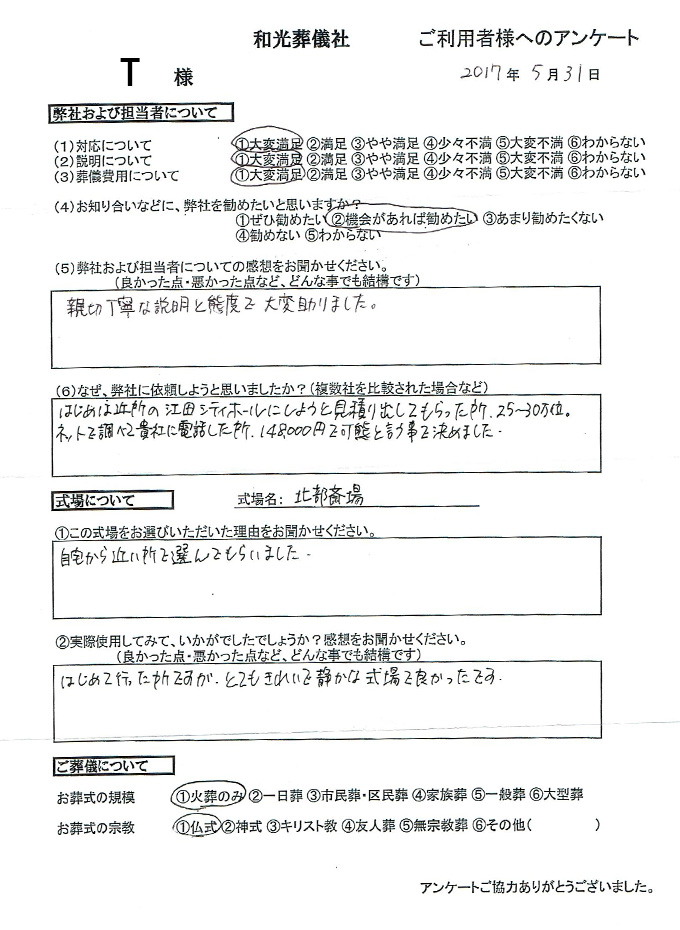 和光葬儀社 ご利用者様へのアンケート
T 様 2017年 5月31日
弊社および担当者について
(1)対応について ①大変満足 ②満足 ③やや満足 ④少々不満 ⑤大変不満 ⑥わからない
(2)説明について ①大変満足 ②満足 ③やや満足 ④少々不満 ⑤大変不満 ⑥わからない
(3)葬儀費用について ①大変満足 ②満足 ③やや満足 ④少々不満 ⑤大変不満 ⑥わからない
(4)お知り合いなどに、弊社を勧めたいと思いますか?
①ぜひ勧めたい ②機会があれば勧めたい ③あまり勧めたくない
④勧めない ⑤わからない
(5)弊社および担当者についての感想をお聞かせください。
(良かった点・悪かった点など、どんな事でも結構です)
親切丁寧な説明と態度で大変助りました。
(6)なぜ、弊社に依頼しようと思いましたか?(複数社を比較された場合など)
はじめは近所の江田シティホールにしようと見積り出してもらった所、25~30万位。
ネットで調べて貴社に電話した所、148000円で可態と言う事で決めました。
式場について 式場名: 北部斎場
①この式場をお選びいただいた理由をお聞かせください。
自宅から近い所で選んでもらいました。
②実際使用してみて、いかがでしたでしょうか?感想をお聞かせください。
(良かった点・悪かった点など、どんな事でも結構です)
はじめて行った所ですが、とてもきれいで静かな式場で良かったです。
ご葬儀について
お葬式の規模 ①火葬のみ ②一日葬 ③市民葬・区民葬 ④家族葬 ⑤一般葬 ⑥大型葬
お葬式の宗教 ①仏式 ②神式 ③キリスト教 ④友人葬 ⑤無宗教葬 ⑥その他( )
アンケートご協力ありがとうございました。